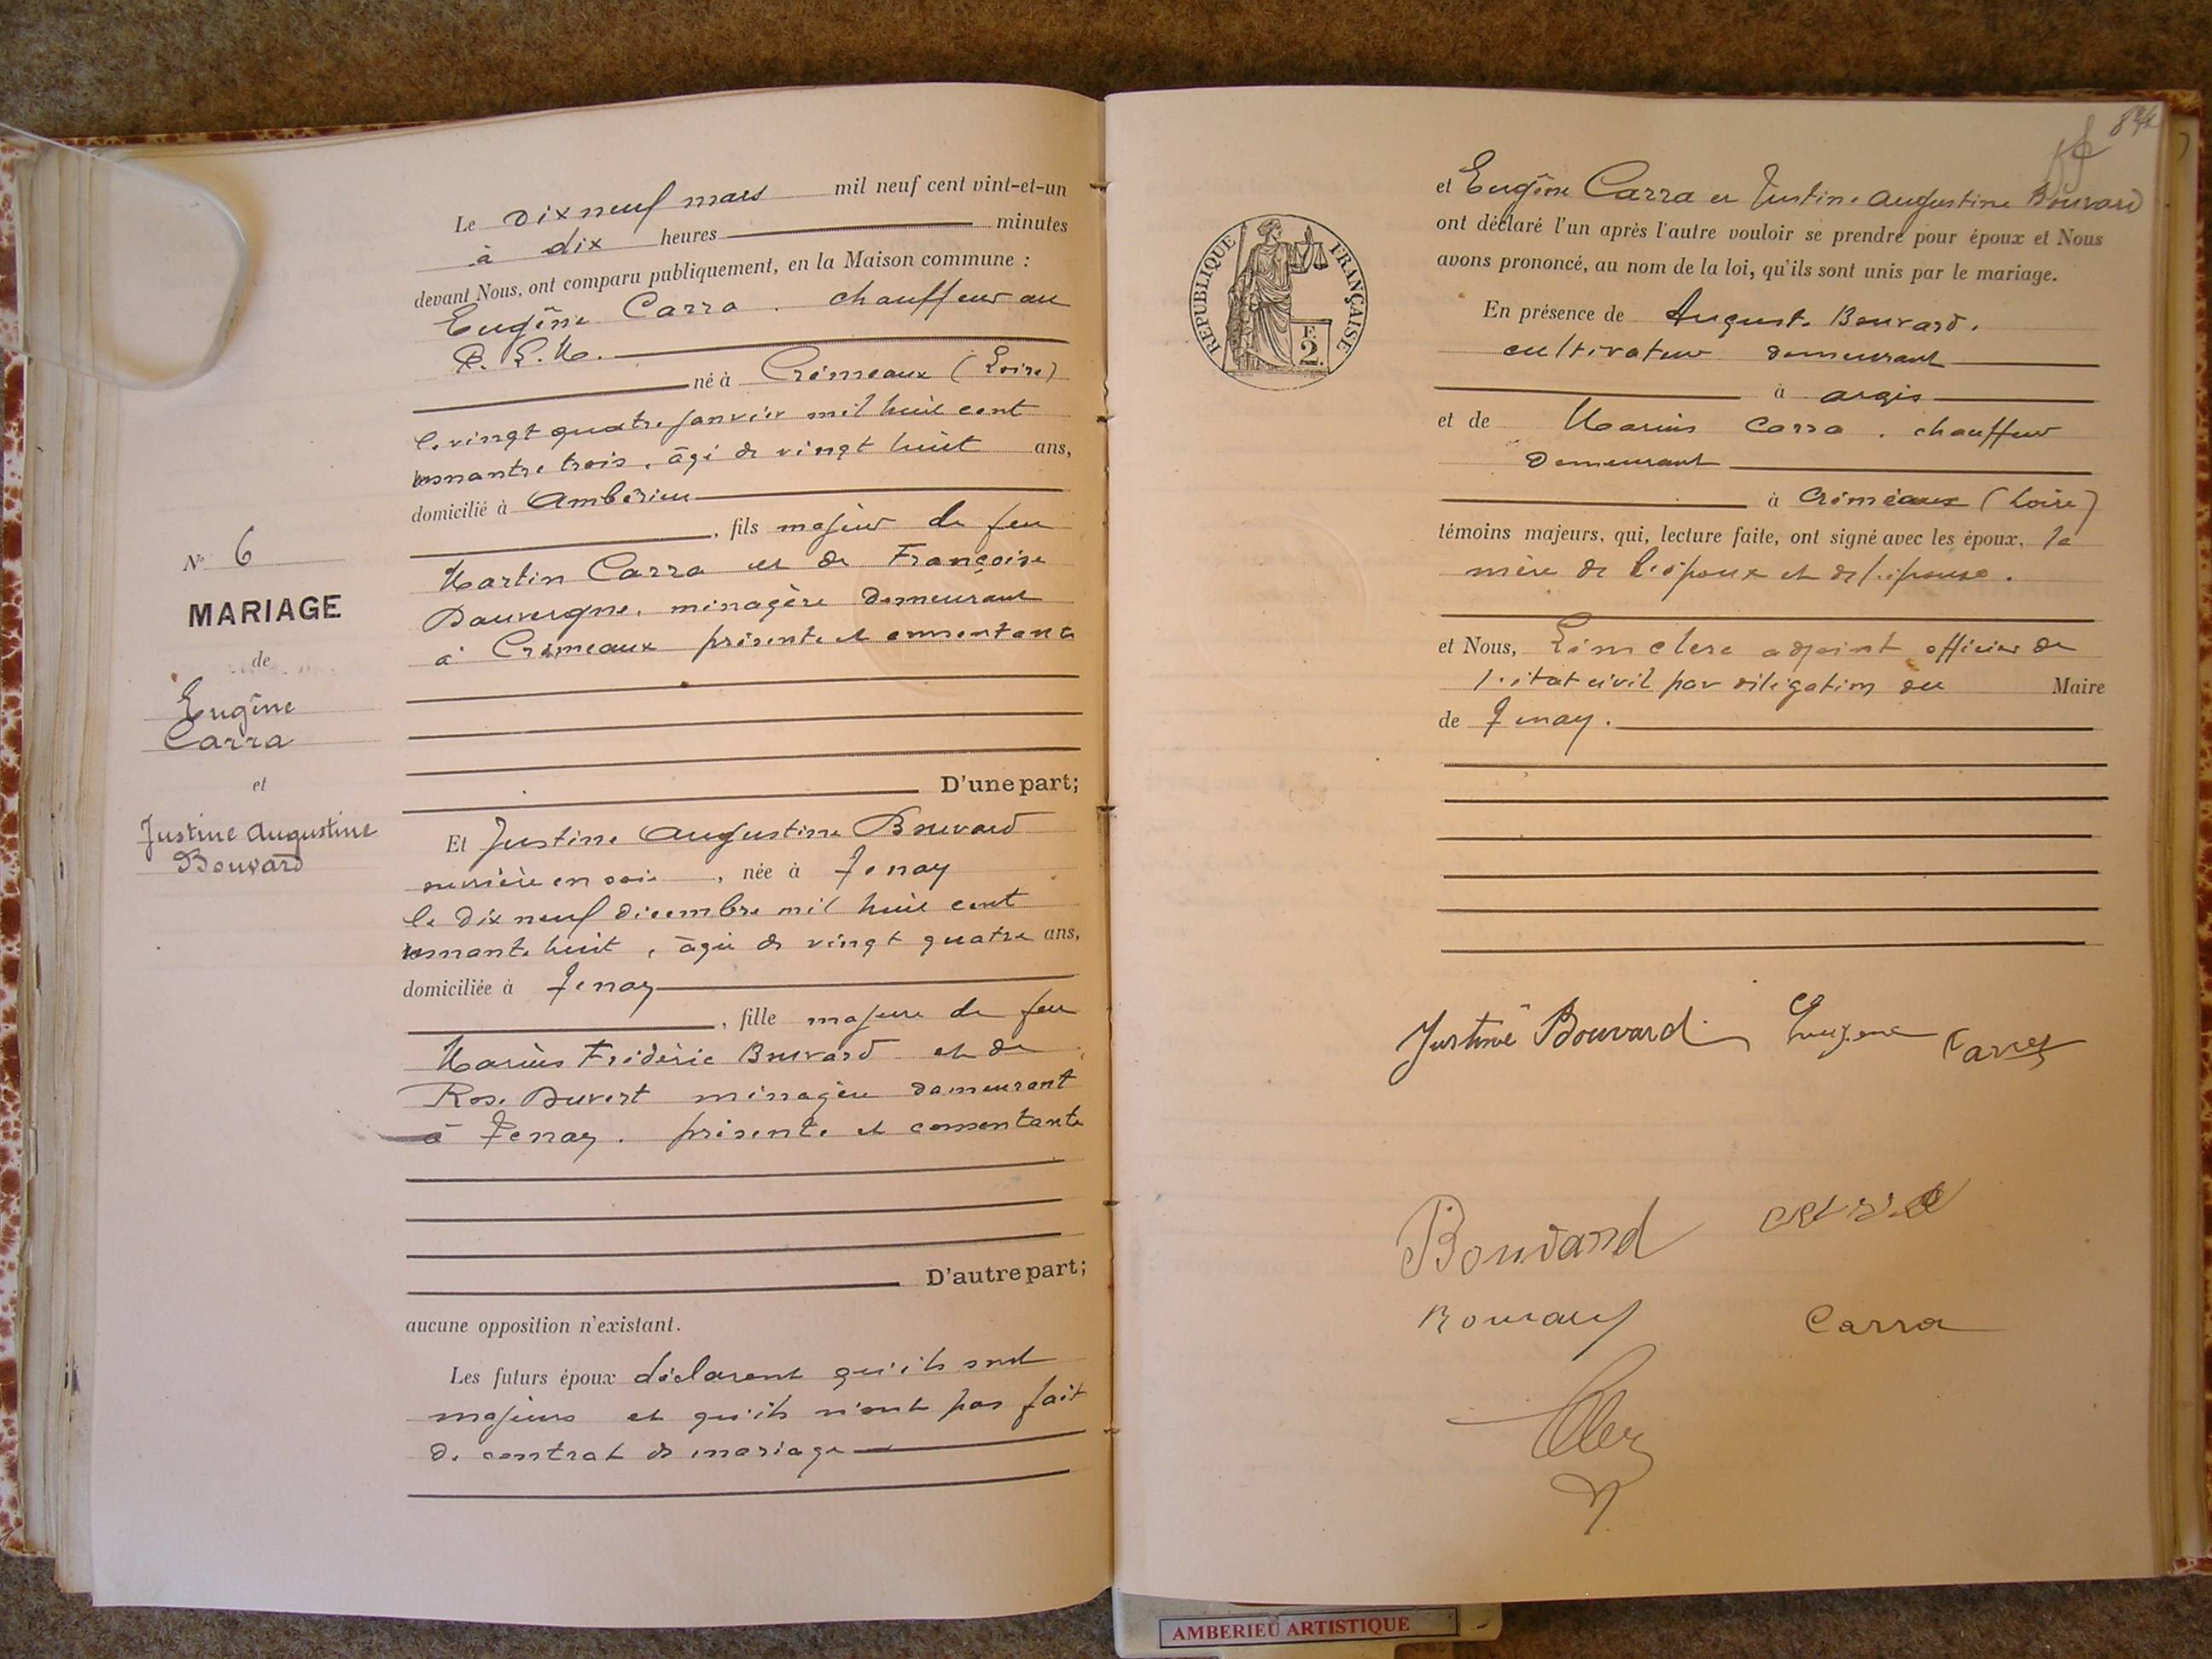 Le dix neuf mars mil neuf cent vint-et-un
à dix heures minutes
devant Nous, ont comparu publiquement, en la Maison commune :
Eugène Carra . chauffeur au
P. L. M.
né à Crémeaux (Loire)
le vingt quatre janvier mil huit cent
nonantre trois, âgé de vingt huit ans,
domicilié à Ambérieu
, fils majeur de feu
Martin Carra et de Françoise
Dauvergne, ménagère demeurant
à Crémeaux présente et consentante
D'une part;
Nº 6
MARIAGE
de
Eugène
Carra
et
Justine Augustine
Bouvard
Et Justine Augustine Bouvard
ouvrière en soie , née à Tenay
le dix neuf décembre mil huit cent
nonante huit , âgée de vingt quatre ans,
domiciliée à Tenay
, fille majeure de feu
Marius Frédéric Bouvard et de
Rose Duvert ménagère demeurant
à Tenay . présente et consentante
D'autre part;
aucune opposition n'existant.
Les futurs époux déclarent qu'ils sont
majeurs et qu'ils n'ont pas fait
de contrat de mariage
et Eugène Carra et Justine Augustine Bouvard
ont déclaré l'un après l'autre vouloir se prendre pour époux et Nous
avons prononcé, au nom de la loi, qu'ils sont unis par le mariage.
En présence de Auguste Bouvard.
cultivateur demeurant
à Argis
et de Marius Carra . chauffeur
demeurant
à Crémeaux (Loire)
témoins majeurs, qui, lecture faite, ont signé avec les époux, la
mère de l'époux et de l'épouse.
et Nous, adjoint officier de
l'état civil par délégation du Maire
de Tenay.
REPUBLIQUE FRANÇAISE
2
Justine Bouvard Eugene Carra
Bouvard carra
Bouvard Carra
AMBERIEU ARTISTIQUE